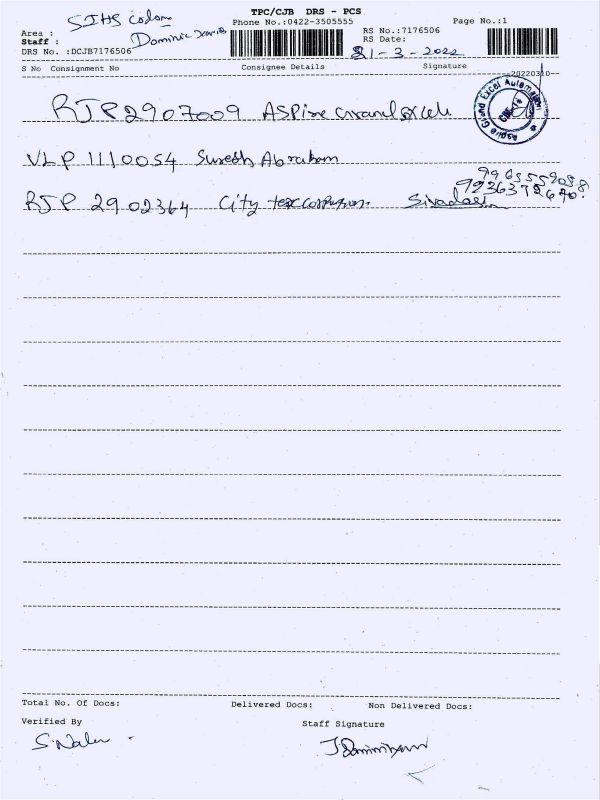 TPC/CJB DRS - PCS
Phone No.:0422-3505555 Page No.:1
Area : SIHS Colony
Staff : Dominic Xavier
RS No.:7176506
DRS No. :DCJB7176506
RS Date: 21-3-2022
S No Consignment No Consignee Details Signature
RJP2907009 ASPire Grand Excel
Aspire Grand Excel Automation
VLP 1110054 Suresh Abraham
RJP 2902364 City tex corporation Sivadas
Total No. Of Docs: Delivered Docs: Non Delivered Docs:
Verified By Staff Signature